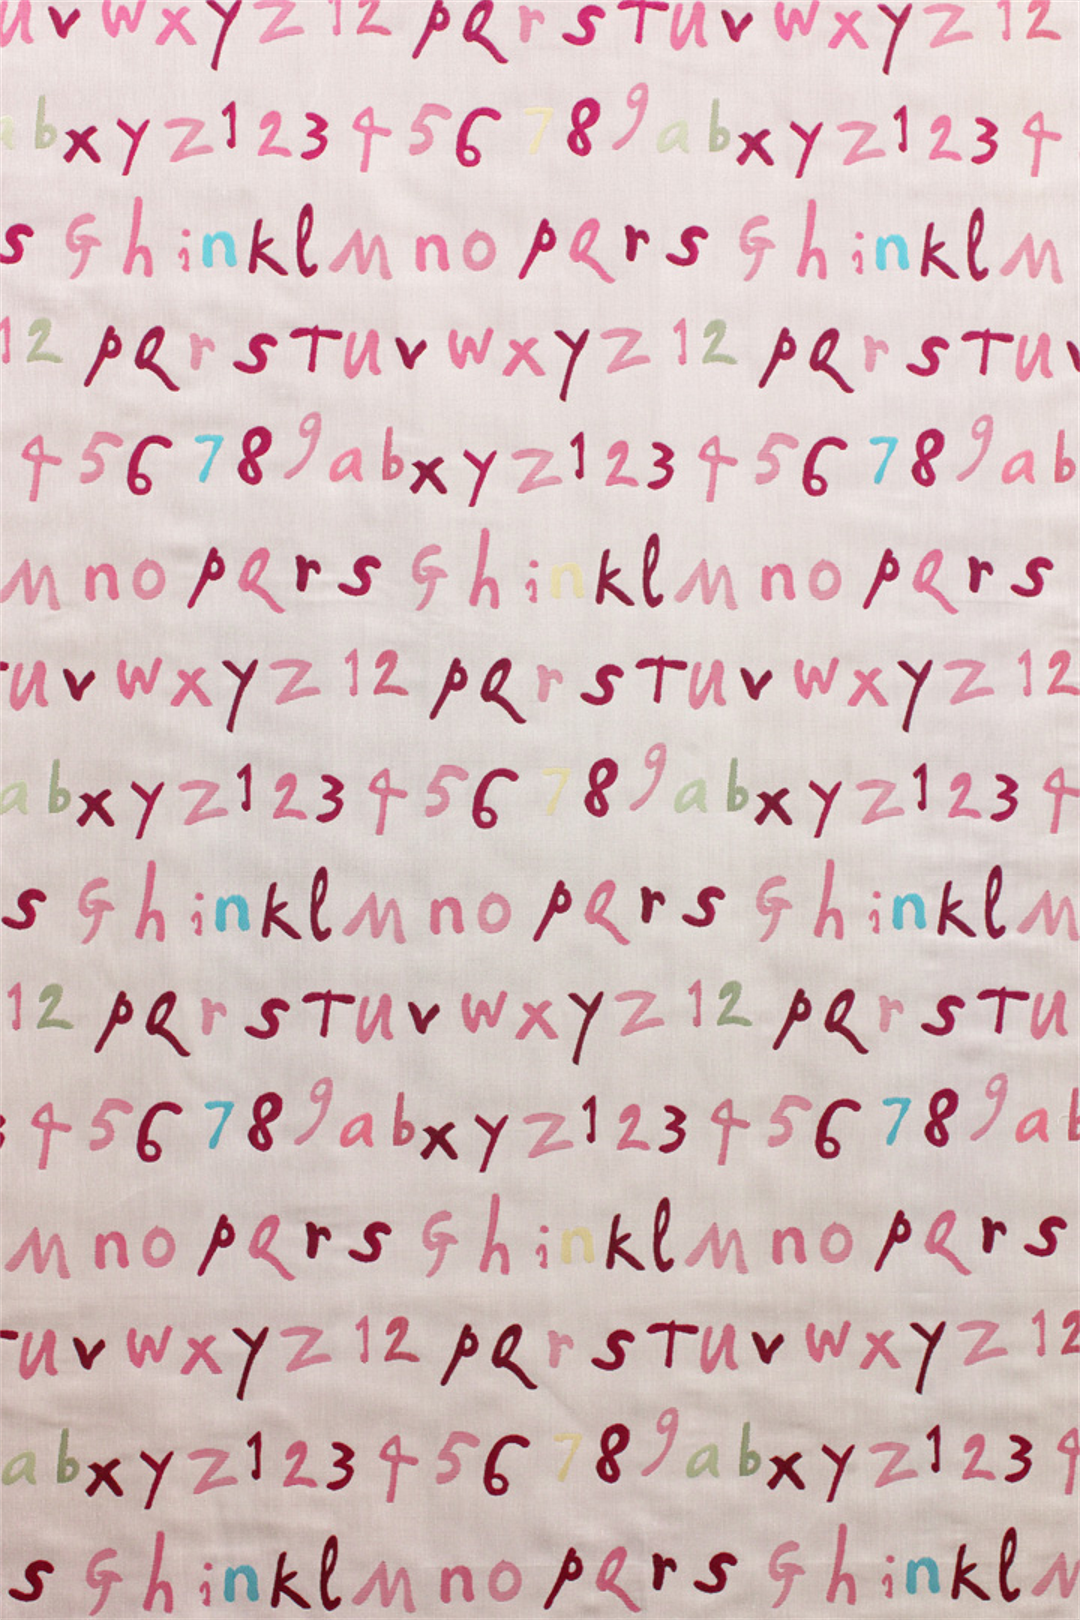 u v w x y z 1 2 p Q r s T u v w x y z 1 2
a b x y z 1 2 3 4 5 6 7 8 9 a b x y z 1 2 3 4
s G h i n k l M n o p Q r s G h i n k l M
1 2 p Q r s T u v w x y z 1 2 p Q r s T u v
4 5 6 7 8 9 a b x y z 1 2 3 4 5 6 7 8 9 a b
M n o p Q r s G h i n k l M n o p Q r s
T u v w x y z 1 2 p Q r s T u v w x y z 1 2
a b x y z 1 2 3 4 5 6 7 8 9 a b x y z 1 2 3 4
s G h i n k l M n o p Q r s G h i n k l M
1 2 p Q r s T u v w x y z 1 2 p Q r s T u
3 4 5 6 7 8 9 a b x y z 1 2 3 4 5 6 7 8 9 a b
M n o p Q r s G h i n k l M n o p Q r s
T u v w x y z 1 2 p Q r s T u v w x y z 1 2
a b x y z 1 2 3 4 5 6 7 8 9 a b x y z 1 2 3 4
s G h i n k l M n o p Q r s G h i n k l M